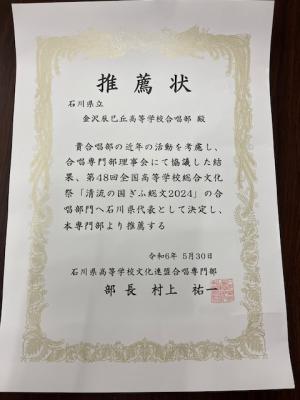 推薦状
石川県立
金沢辰巳丘高等学校合唱部 殿
貴合唱部の近年の活動を考慮し、
合唱専門部理事会にて協議した結
果、第48回全国高等学校総合文化
祭「清流の国ぎふ総文2024」の合
唱部門へ石川県代表として決定し、
本専門部より推薦する
令和6年 5月30日
石川県高等学校文化連盟合唱専門部
部長 村上 祐一